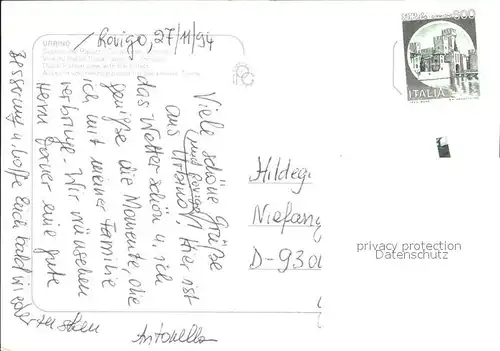 Rovigo, 27/11/94
URBINO
Viele schöne Grüße
(und Rovigo)
aus Urbino, Hier ist
das Wetter schön u. ich
genieße die Momente, die
ich mit meiner Familie
verbringe. Wir wünschen
Herrn eine gute
Besserung u. hoffe Euch bald wieder
zu sehen
Antonella
800
ITALIA
Hildeg
Niefang
D-930
privacy protection
Datenschutz